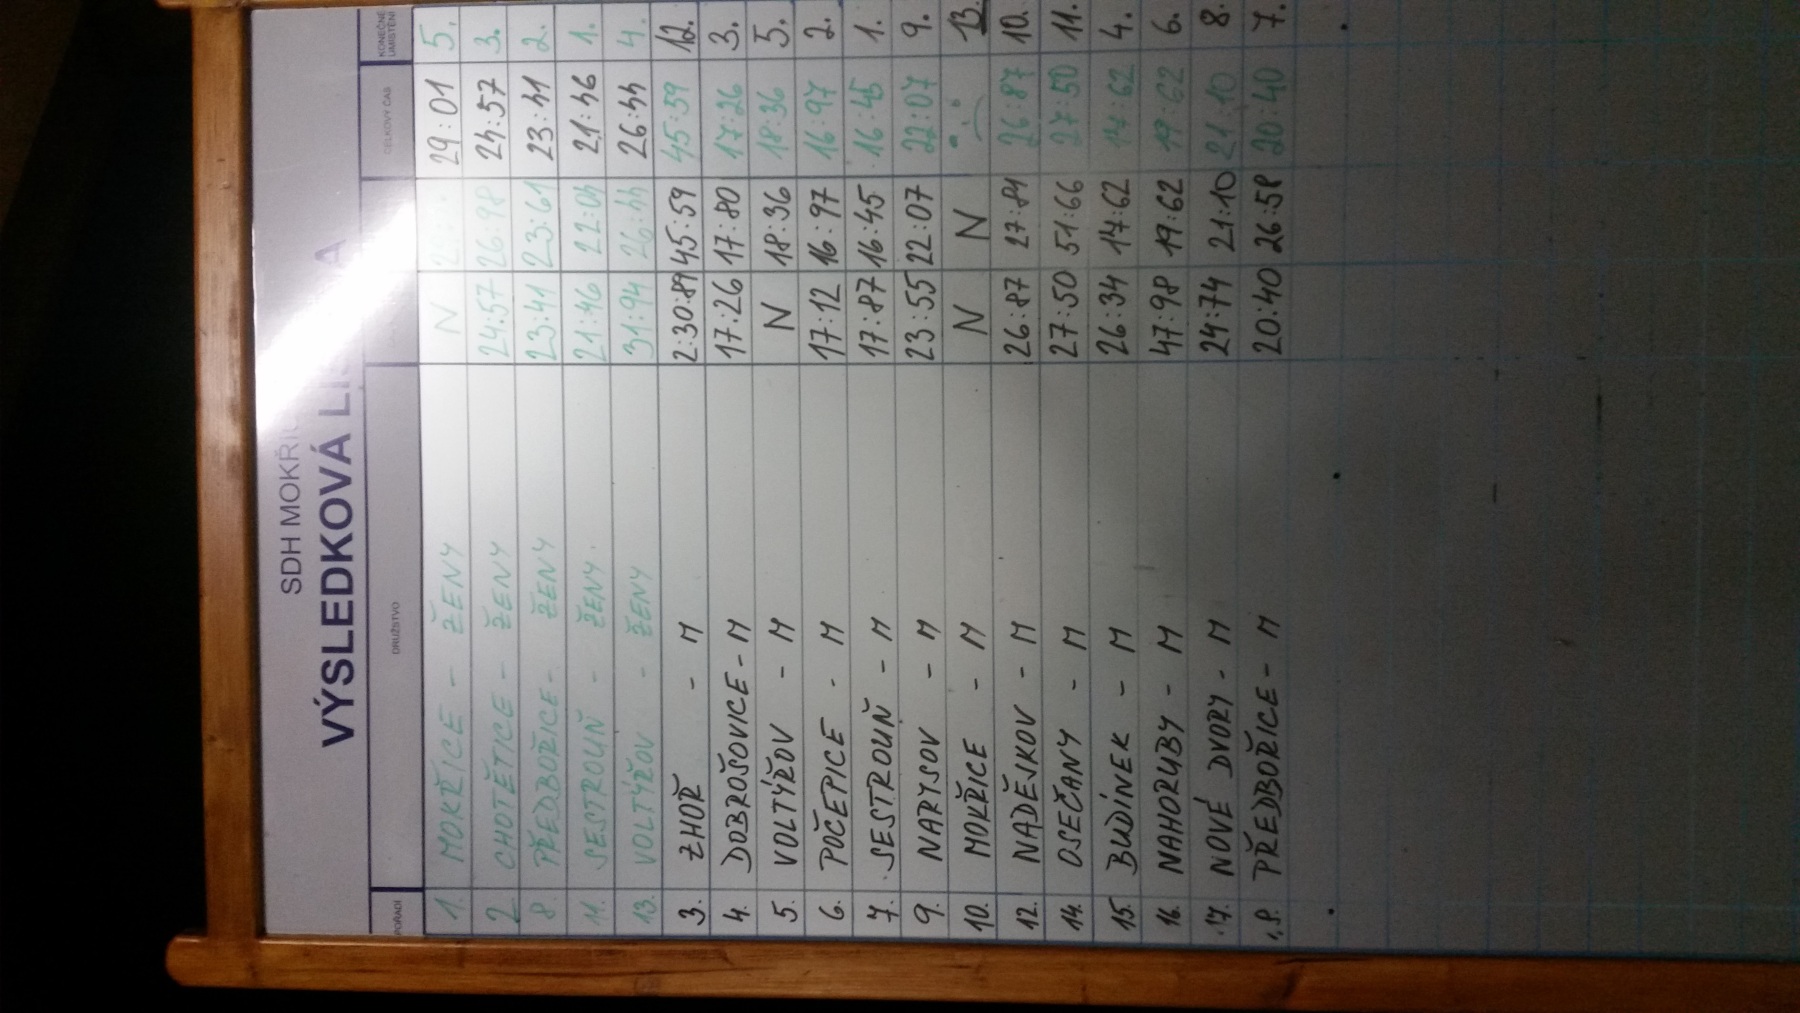 SDH MOKŘI
VÝSLEDKOVÁ
POŘADÍ DRUŽSTVO CELKOVÝ ČAS KONEČNÉ UMÍSTĚNÍ
1. MOKŘICE - ŽENY N 29:01 5.
2. CHOTĚTICE - ŽENY 24:57 26:98 24:57 3.
8. PŘEDBOŘICE - ŽENY 23:41 23:61 23:41 2.
11. SESTROUŇ - ŽENY. 21:46 22:04 21:46 1.
13. VOLTÝŘOV - ŽENY 31:94 26:44 26:44 4.
3. ZHOŘ - M 2:30:89 45:59 45:59 12.
4. DOBROŠOVICE - M 17:26 17:80 17:26 3.
5. VOLTÝŘOV - M N 18:36 18:36 5.
6. POČEPICE - M 17:12 16:97 16:97 2.
7. SESTROUŇ - M 17:87 16:45 16:45 1.
9. NARYSOV - M 23:55 22:07 22:07 9.
10. MOKŘICE - M N N 13.
12. NADĚJKOV - M 26:87 27:84 26:87 10.
14. OSEČANY - M 27:50 51:66 27:50 11.
15. BUDÍNEK - M 26:34 17:62 17:62 4.
16. NAHORUBY - M 47:98 19:62 19:62 6.
17. NOVÉ DVORY - M 24:74 21:10 21:10 8.
18. PŘEDBOŘICE - M 20:40 26:58 20:40 7.